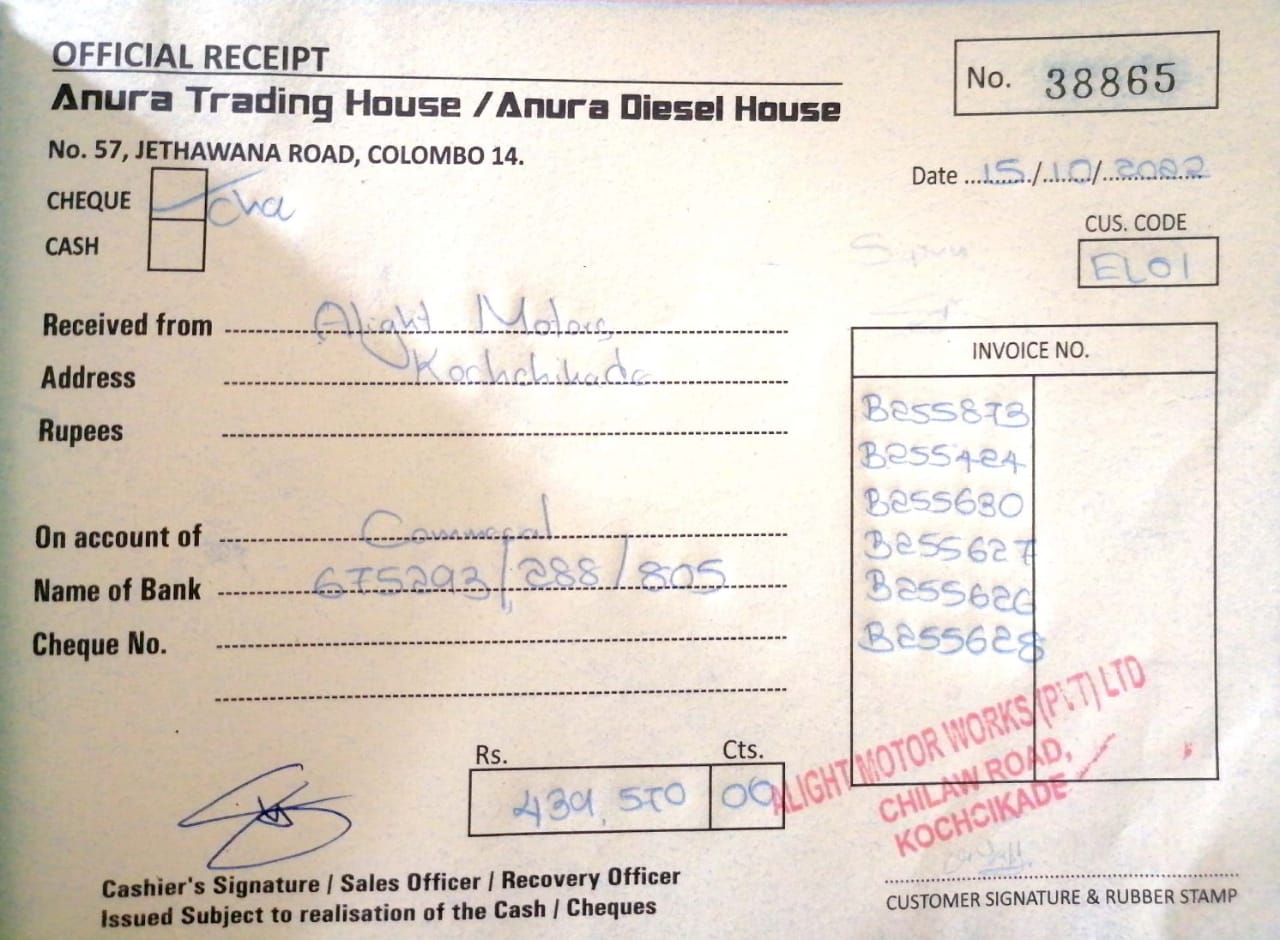 OFFICIAL RECEIPT
Anura Trading House / Anura Diesel House
No. 57, JETHAWANA ROAD, COLOMBO 14.
No. 38865
Date 15/10/2022
CHEQUE
CASH
CUS. CODE
EL01
Received from Alight Motors
Address Kochchikade
Rupees
On account of
Name of Bank 675293/288/805
Cheque No.
INVOICE NO.
B255873
B255424
B255630
B255627
B255626
B255628
Rs. Cts.
439,570 00
ALIGHT MOTOR WORKS (PVT) LTD
CHILAW ROAD,
KOCHCIKADE
Cashier's Signature / Sales Officer / Recovery Officer
Issued Subject to realisation of the Cash / Cheques
CUSTOMER SIGNATURE & RUBBER STAMP